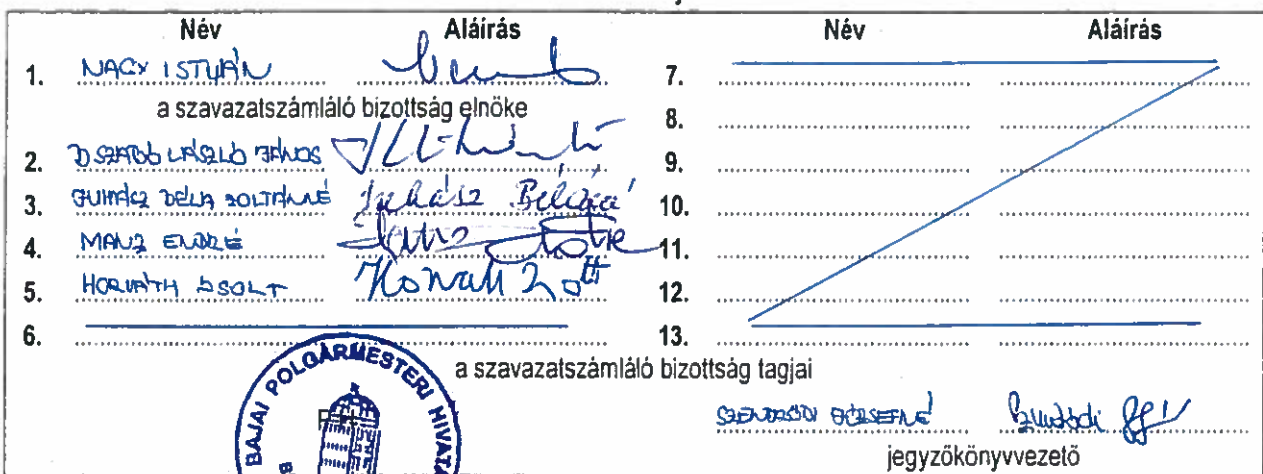 Név Aláírás Név Aláírás
1. NAGY ISTVÁN
a szavazatszámláló bizottság elnöke
2. D SZABÓ LÁSZLÓ JÁNOS
3. JUHÁSZ BÉLA ZOLTÁNNÉ Juhász Béláné
4. MANZ ENDRE
5. HORVÁTH ZSOLT Horváth Zsolt
6.
7.
8.
9.
10.
11.
12.
13.
a szavazatszámláló bizottság tagjai
BAJAI POLGÁRMESTERI HIVATA
P.H.
JÓZSEFNÉ
jegyzőkönyvvezető